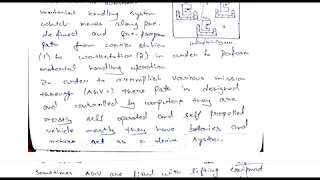 material handling system
which moves along pre-
defined and pre-program
path from workstation
(1) to workstation (2) in order to perform
material handling operation
In order to accomplish various mission
through (AGVs) these path is designed
and controlled by computers they are
mostly self operated and self propelled
vehicle mostly they have batteries and
motors act as a drive system.
Sometimes AGV are fixed with lifting equipment